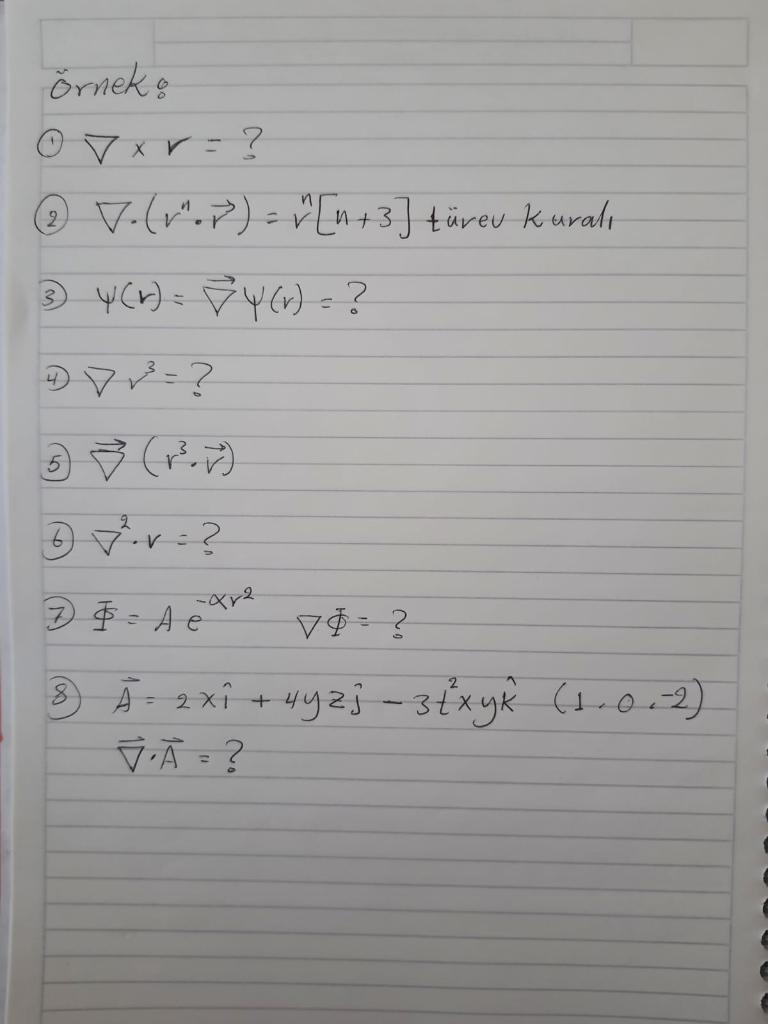 örnek:
① ∇ × r = ?
② ∇·(rⁿ·r⃗) = rⁿ[n+3] türev kuralı
③ Ψ(r) = ∇⃗Ψ(r) = ?
④ ∇ r³ = ?
⑤ ∇⃗ (r³·r⃗)
⑥ ∇²·r = ?
⑦ Φ = A e^(-αr²) ∇Φ = ?
⑧ A⃗ = 2xî + 4yzĵ - 3t²xyk̂ (1.0.-2)
∇⃗·A⃗ = ?